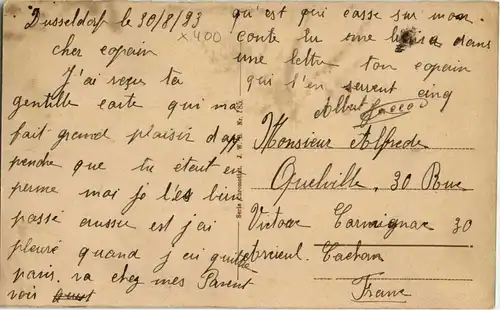 Dusseldorf le 30/8/23
x400
cher copain
J'ai reçus ta
gentille carte qui ma
fait grand plaisir d'ap
pendre que tu étant en
perme mai je l'es bien
passé aussu est j'ai
pleuré quand j'ai quitté
paris. va chez mes Parent
voir
qu'est qui casse sur mon
conte tu me dans
une lettre ton copain
qui t'en serrent cinq
Albert
Serie Chromettal J. W. B. Nr.
Monsieur Alfrede
Quelville, 30 Rue
Victoar Carmignac 30
Arcueil. Cachan
Franc